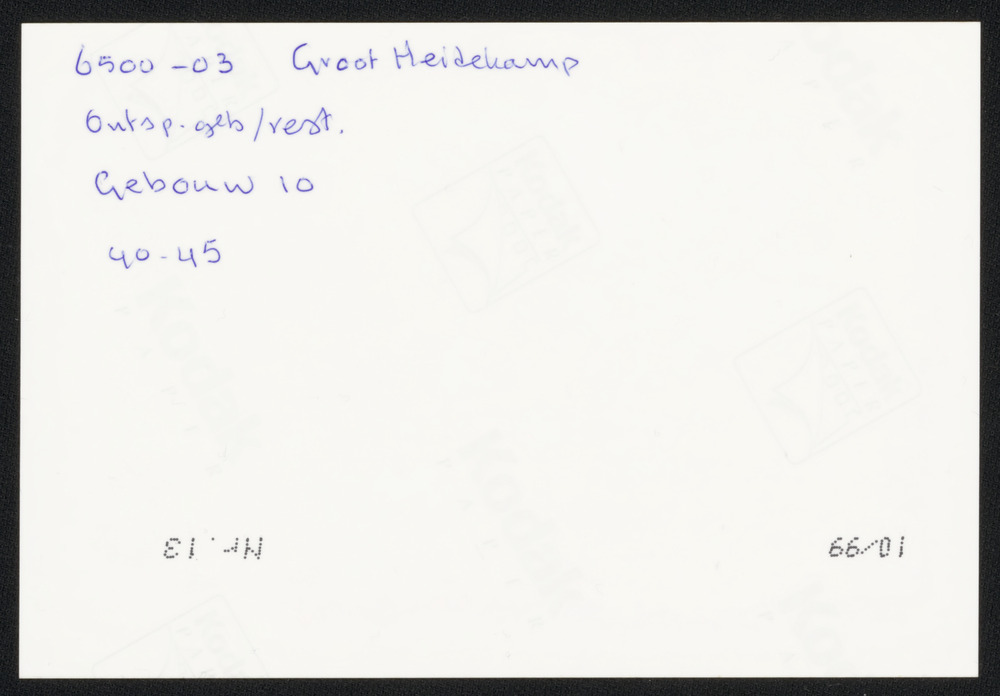 6500-03 Groot Heidekamp
Ontsp.geb/rest.
Gebouw 10
40-45
Nr. 13
10/99
Kodak
Kodak
Kodak
Kodak